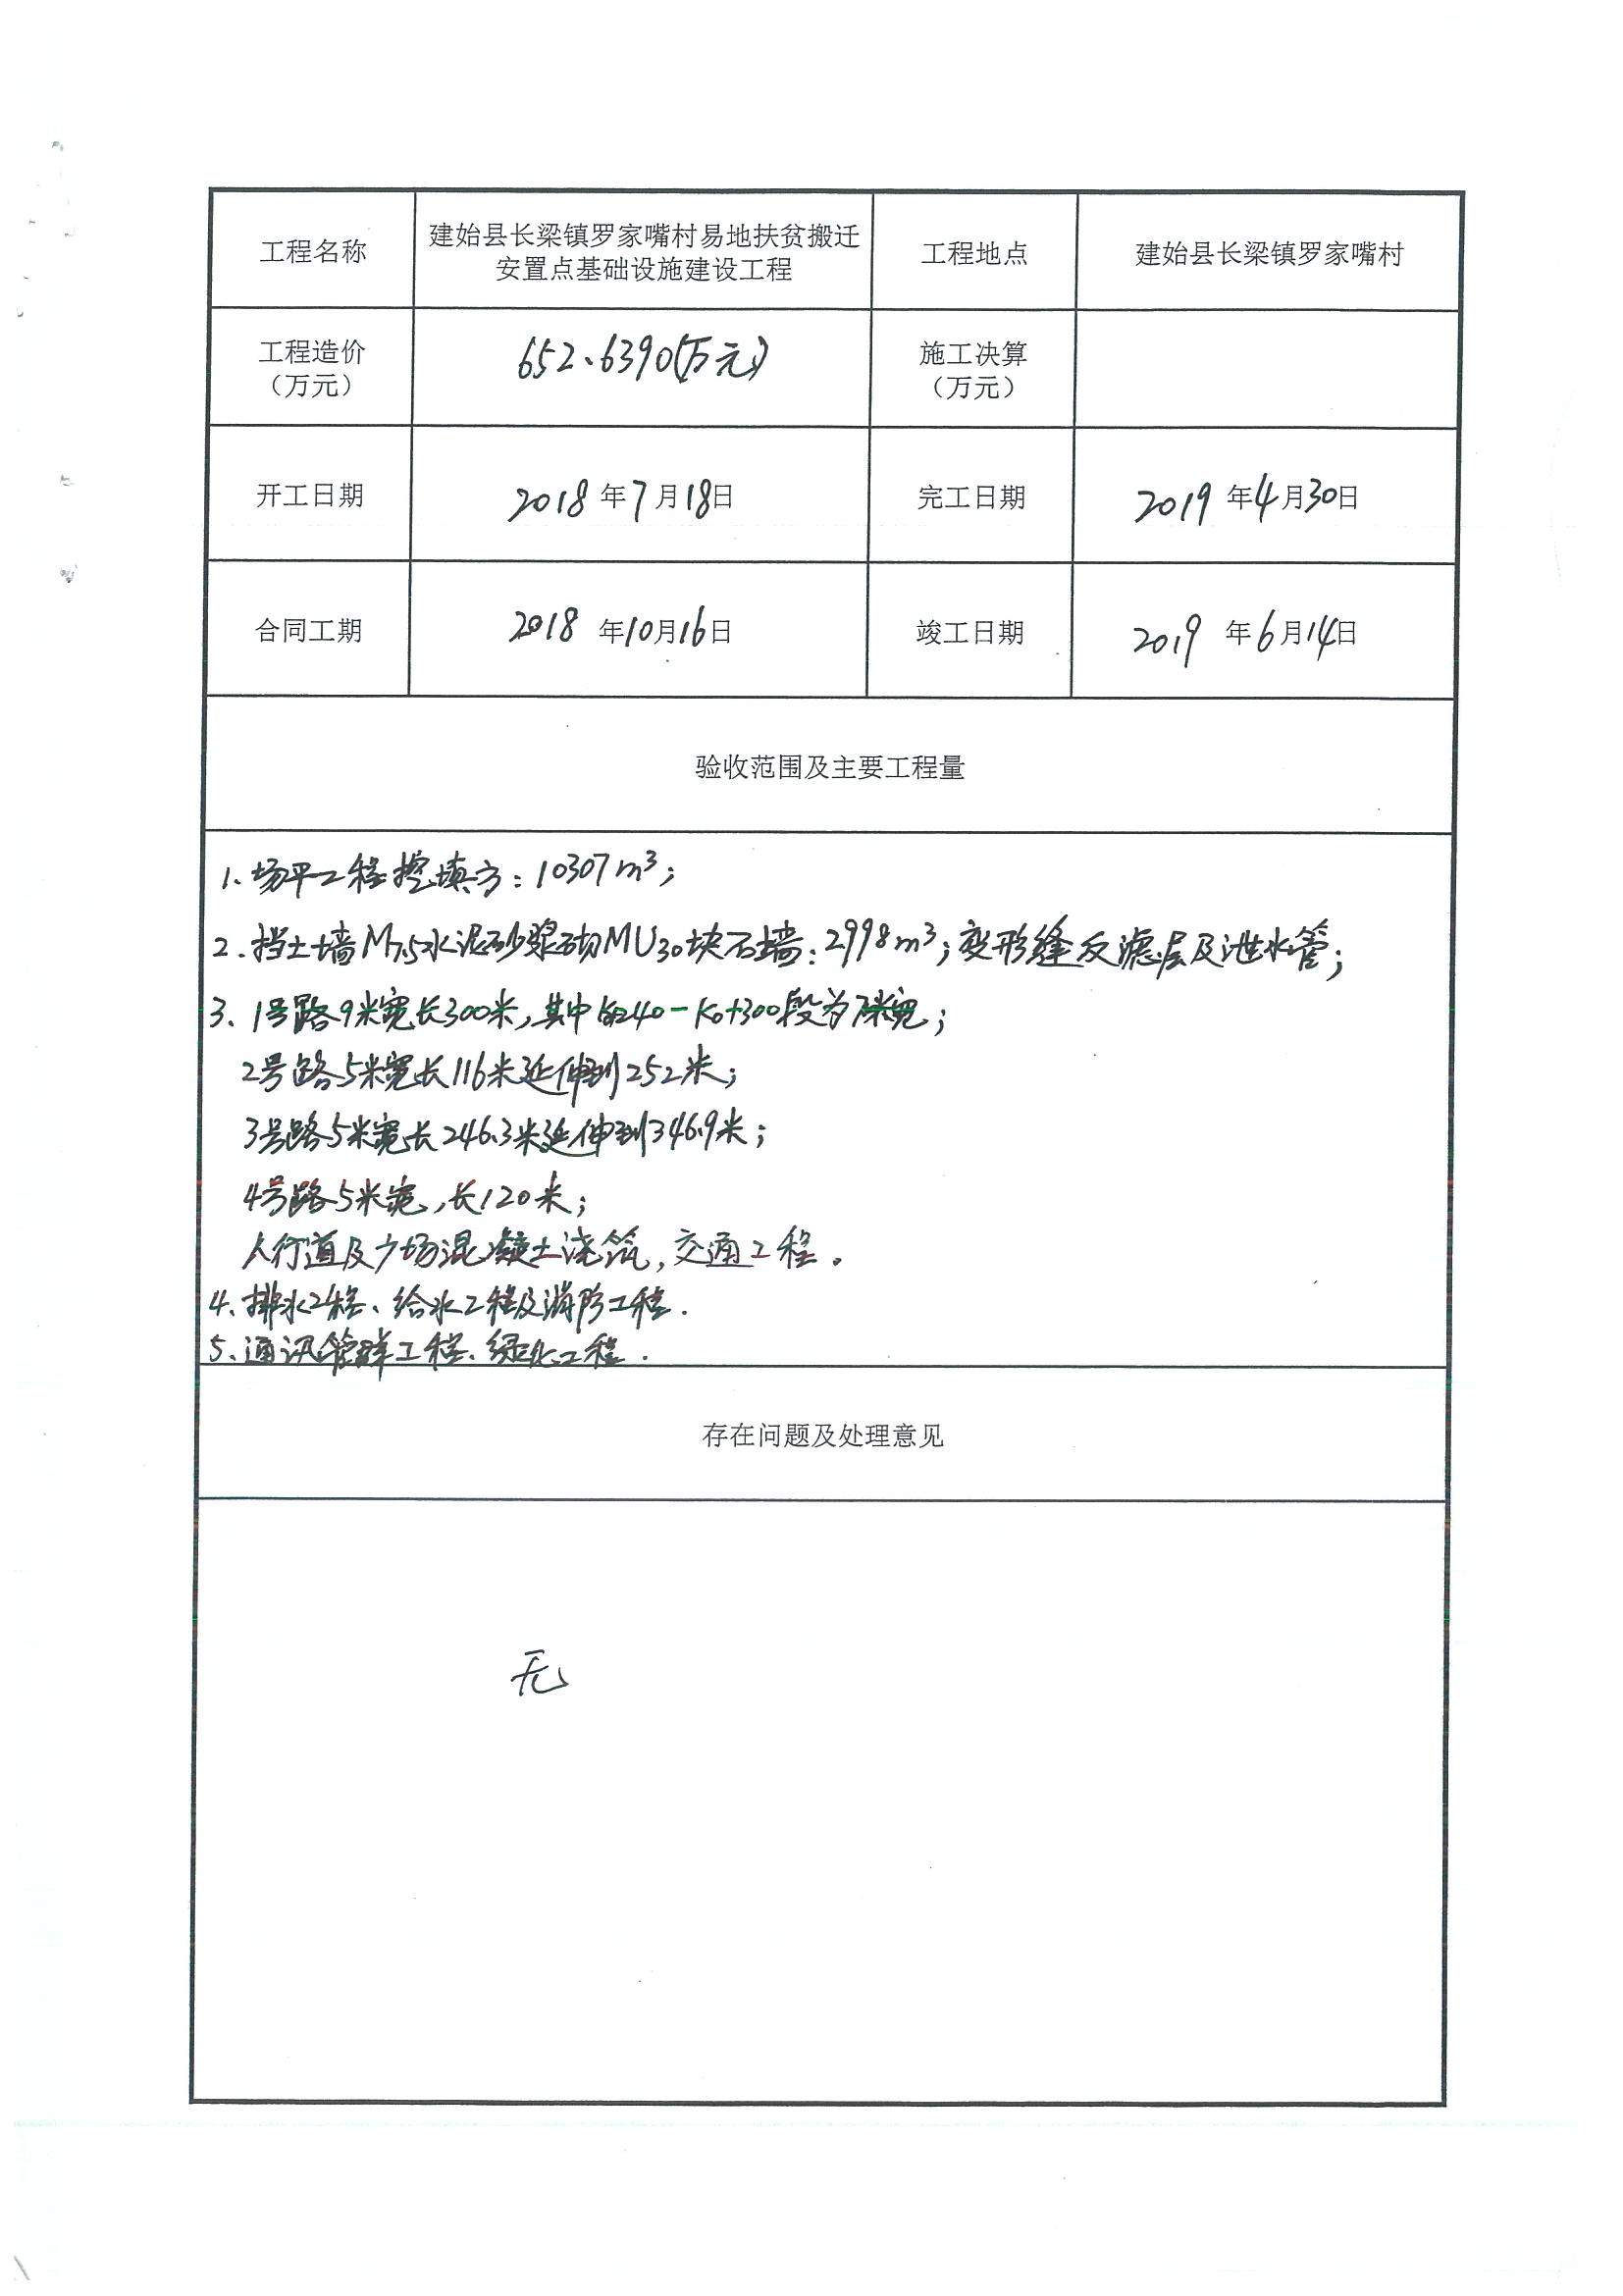 工程名称
建始县长梁镇罗家嘴村易地扶贫搬迁
安置点基础设施建设工程
工程地点
建始县长梁镇罗家嘴村
工程造价
（万元）
652.6390(万元)
施工决算
（万元）
开工日期
2018年7月18日
完工日期
2019年4月30日
合同工期
2018年10月16日
竣工日期
2019年6月14日
验收范围及主要工程量
1、场平工程挖填方：10307m³；
2.挡土墙M7.5水泥砂浆砌MU30块石墙：2998m³；变形缝反滤层及泄水管；
3、1号路9米宽长300米，其中K0+240-K0+300段为7米宽；
2号路5米宽长116米延伸到252米；
3号路5米宽长246.3米延伸到346.9米；
4号路5米宽，长120米；
人行道及广场混凝土浇筑，交通工程。
4、排水工程、给水工程及消防工程.
5、通讯管群工程、绿化工程.
存在问题及处理意见
无